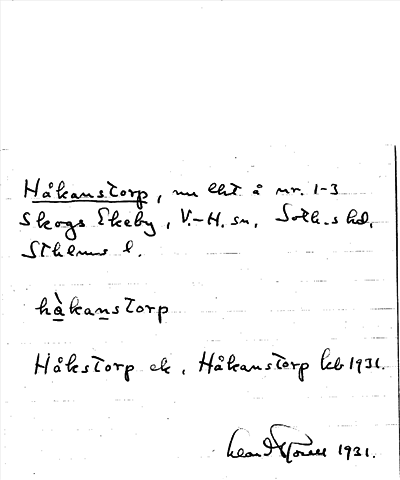 Håkanstorp, nu lht å nr. 1-3
Skogs Ekeby, V.-H. sn, Soth.s hd,
Sthlms l.
hå̀kanstorp
Håkstorp ek, Håkanstorp kb 1931.
1931.